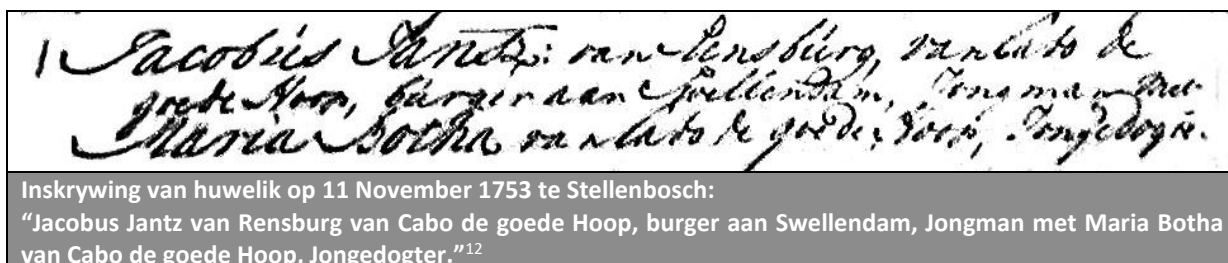 1 Jacobus Jantz: van Rensburg, van Cabo de
goede Hoop, burger aan Swellendam, Jongman met
Maria Botha van Cabo de goede Hoop, Jongedogter.
Inskrywing van huwelik op 11 November 1753 te Stellenbosch:
“Jacobus Jantz van Rensburg van Cabo de goede Hoop, burger aan Swellendam, Jongman met Maria Botha
van Cabo de goede Hoop, Jongedogter.”12